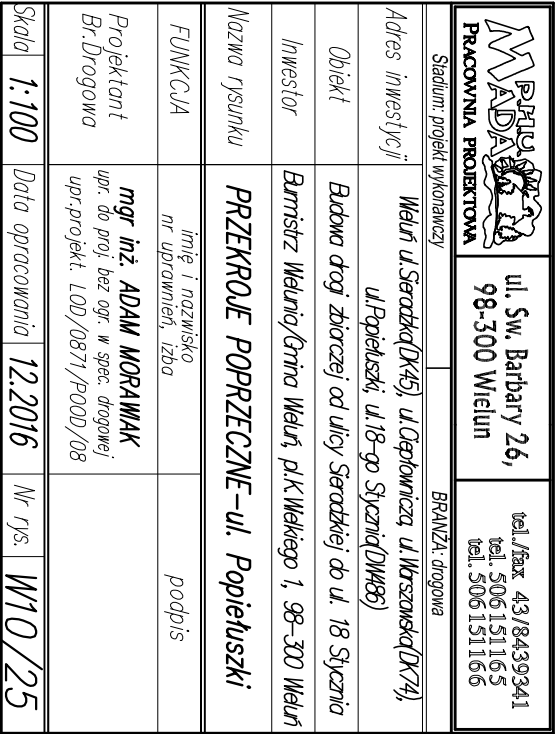 P.H.U.
MADA
PRACOWNIA PROJEKTOWA
ul. Św. Barbary 26,
98-300 Wieluń
tel./fax 43/8439341
tel. 506151165
tel. 506151166
Stadium: projekt wykonawczy
BRANŻA: drogowa
Adres inwestycji
Wieluń ul.Sieradzka(DK45), ul.Ciepłownicza, ul.Warszawska(DK74),
ul.Popiełuszki, ul.18-go Stycznia(DW486)
Obiekt
Budowa drogi zbiorczej od ulicy Sieradzkiej do ul. 18 Stycznia
Inwestor
Burmistrz Wielunia/Gmina Wieluń, pl.K.Wielkiego 1, 98-300 Wieluń
Nazwa rysunku
PRZEKROJE POPRZECZNE-ul. Popiełuszki
FUNKCJA
imię i nazwisko
nr uprawnień, izba
podpis
Projektant
Br.Drogowa
mgr inż. ADAM MORAWIAK
upr. do proj. bez ogr. w spec. drogowej
upr.projekt. LOD/0871/POOD/08
Skala
1:100
Data opracowania
12.2016
Nr rys.
W10/25